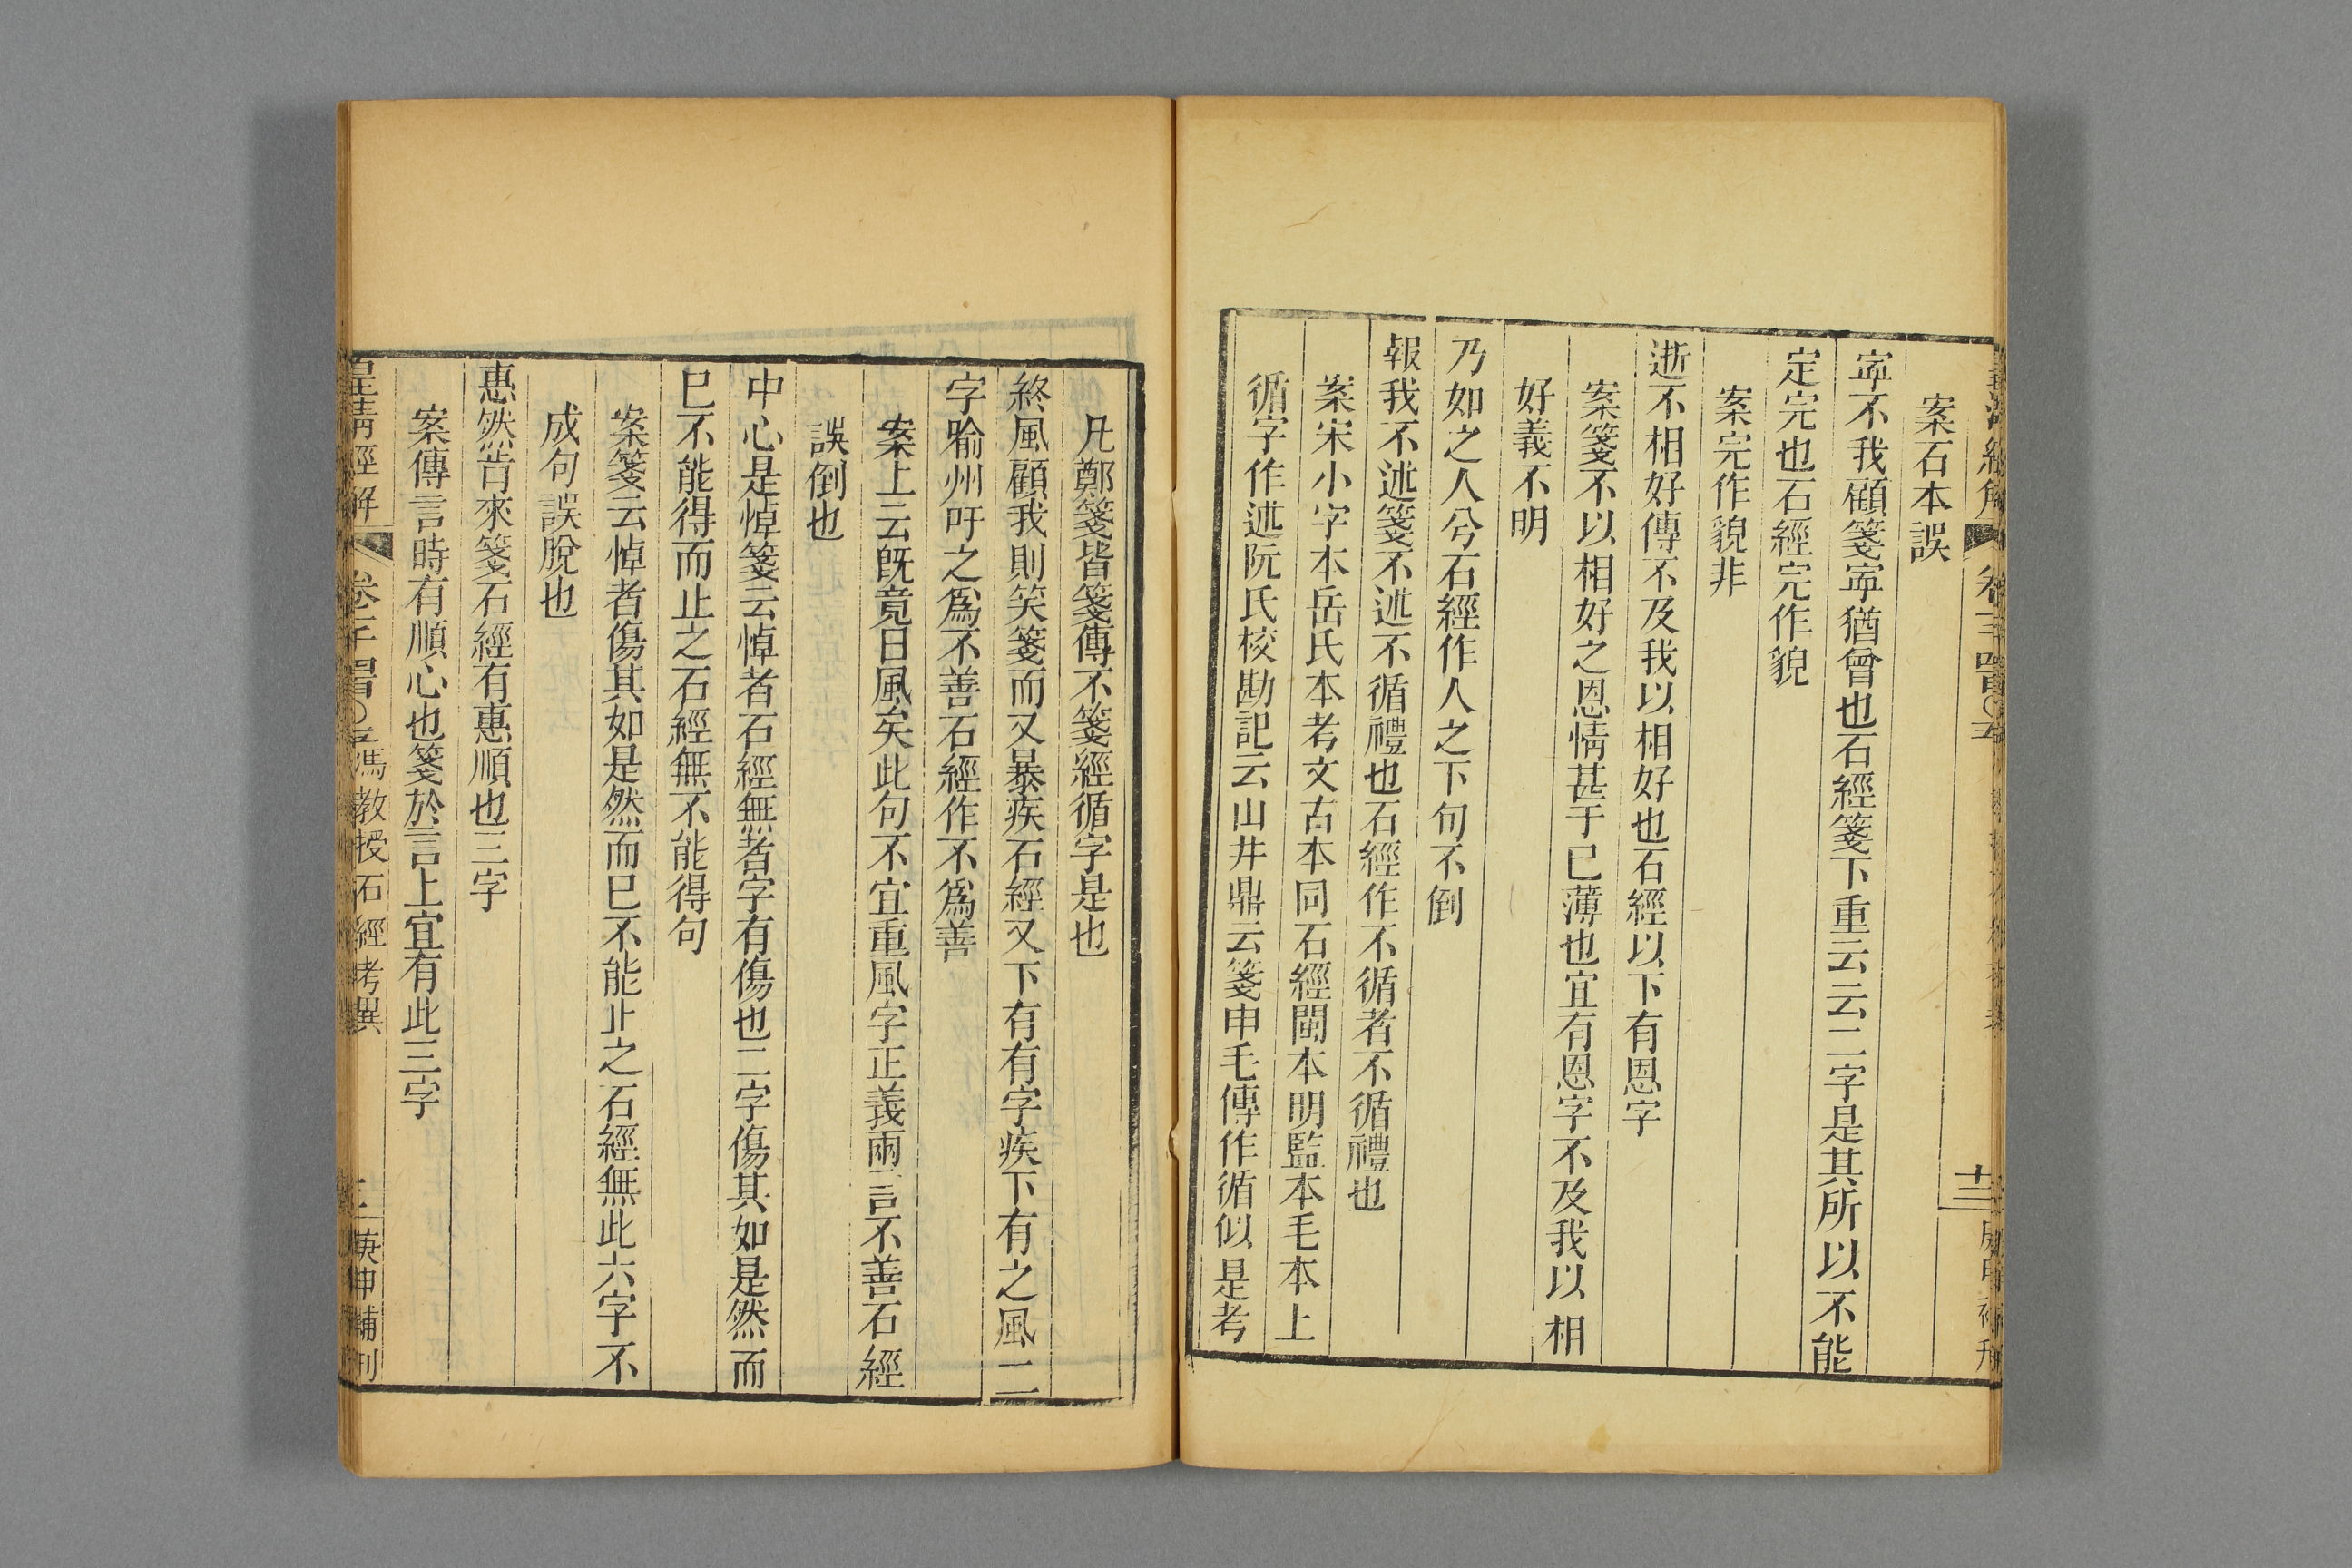 案石本誤
寍不我顧箋寍猶曾也石經箋下重云云二字是其所以不能
定完也石經完作貌
案完作貌非
逝不相好傳不及我以相好也石經以下有恩字
案箋不以相好之恩情甚于已薄也宜有恩字不及我以相
好義不明
乃如之人兮石經作人之下句不倒
報我不述箋不述不循禮也石經作不循者不循禮也
案宋小字本岳氏本考文古本同石經閩本明監本毛本上
循字作述阮氏校勘記云山井鼎云箋申毛傳作循似是考
凡鄭箋皆箋傳不箋經循字是也
終風顧我則笑箋而又暴疾石經又下有有字疾下有之風二
字喻州吁之爲不善石經作不爲善
案上云旣竟日風矣此句不宜重風字正義兩言不善石經
誤倒也
中心是悼箋云悼者石經無者字有傷也二字傷其如是然而
已不能得而止之石經無不能得句
案箋云悼者傷其如是然而已不能止之石經無此六字不
成句誤脫也
惠然肯來箋石經有惠順也三字
案傳言時有順心也箋於言上宜有此三字
皇清經解 馮教授石經考異 庚申補刊